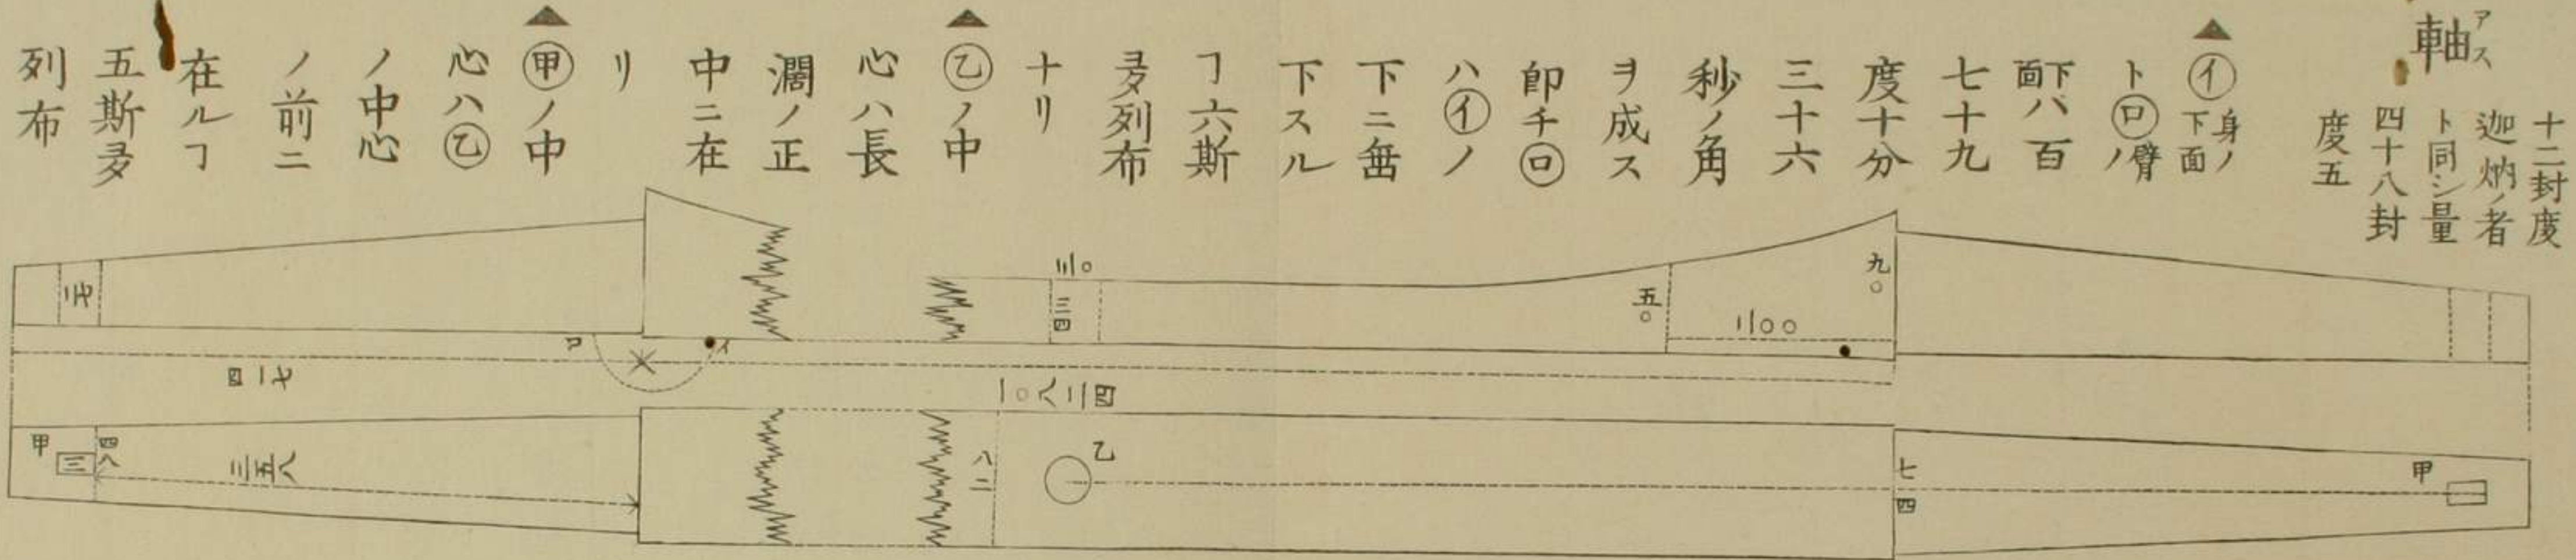 軸アス
十二封度
迦炳ノ者
ト同シ量
四十八封
度五
▲㋑身ノ下面
ト㋺臂ノ
下面ハ百
七十九
度十分
三十六
秒ノ角
ヲ成ス
即チ㋺
ハ㋑ノ
下ニ垂
下スル
ヿ六斯
多列布
ナリ
▲乙ノ中
心ハ長
濶ノ正
中ニ在
リ
▲甲ノ中
心ハ乙
ノ中心
ノ前ニ
在ルヿ
五斯多
列布
二七
三〇
三四
五〇
九〇
二〇〇
ロ
イ
四一七
一〇八二四
甲
三
四八
三五八
八二
乙
七四
甲